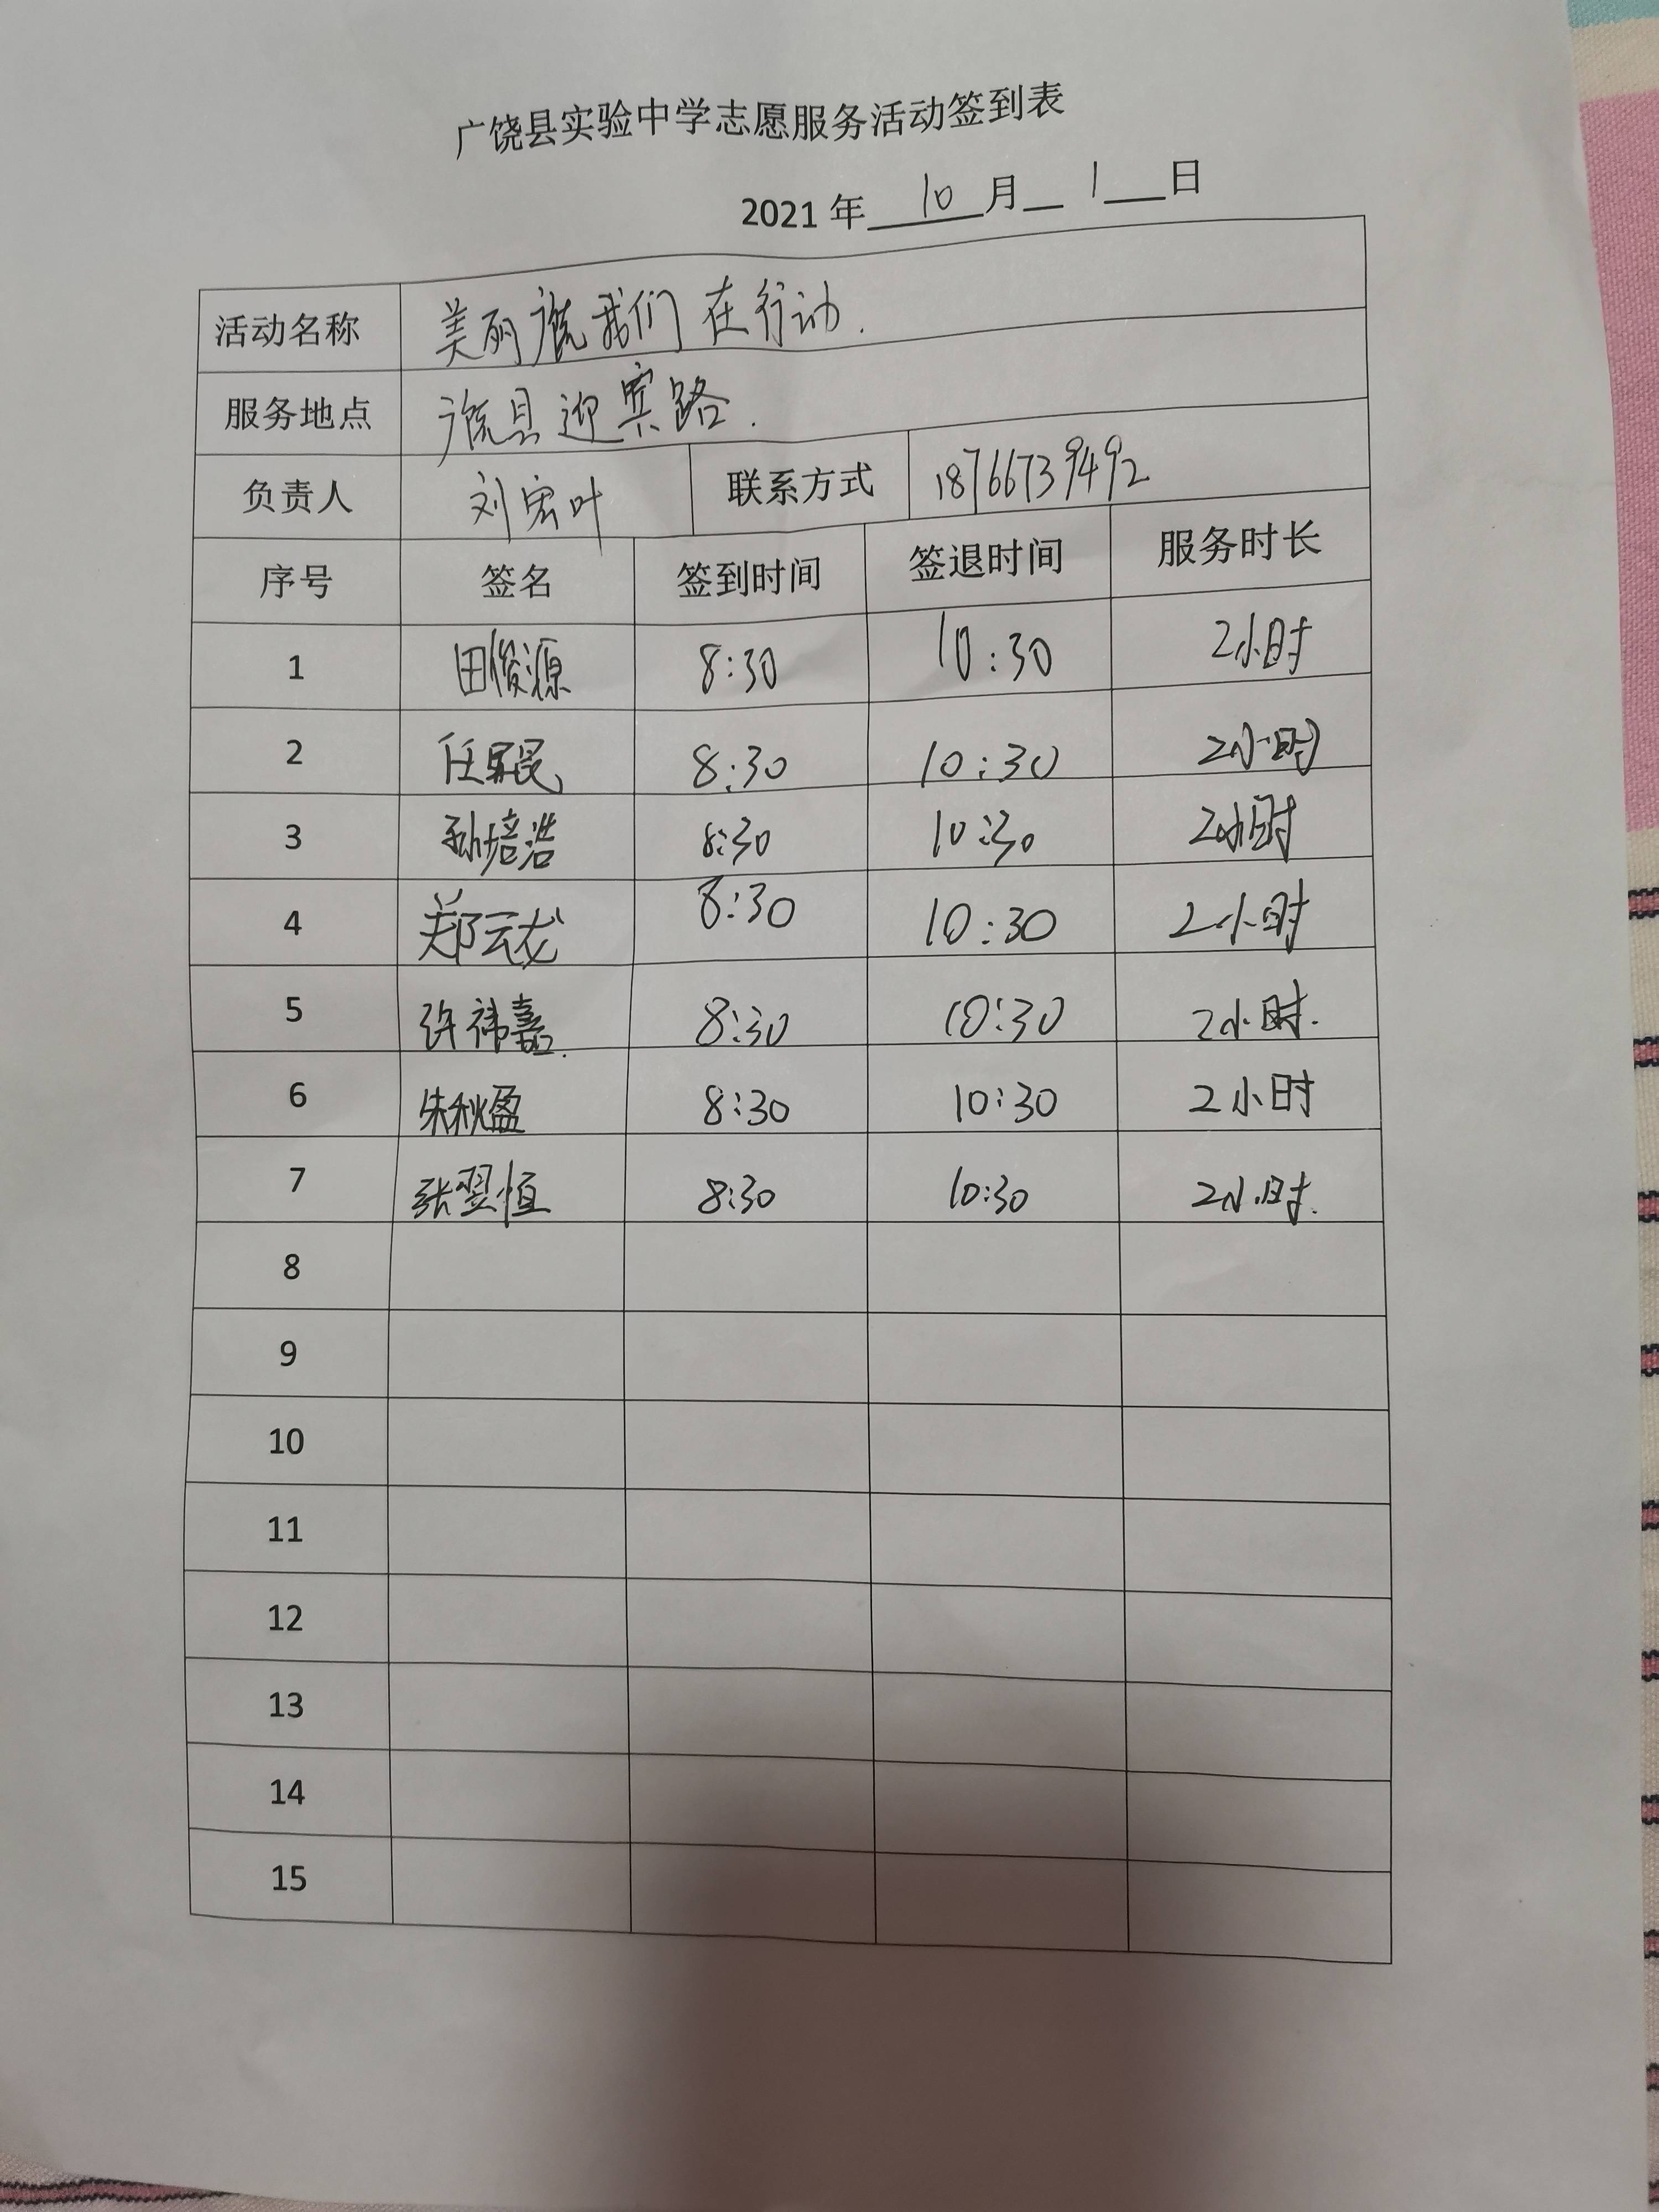 广饶县实验中学志愿服务活动签到表
2021 年 10 月 1 日
活动名称 美丽广饶我们在行动.
服务地点 广饶县迎宾路.
负责人 刘宏叶 联系方式 18766739492
序号 签名 签到时间 签退时间 服务时长
1 田俊源 8:30 10:30 2小时
2 8:30 10:30 2小时
3 孙培浩 8:30 10:30 2小时
4 郑云龙 8:30 10:30 2小时
5 许祎嘉. 8:30 10:30 2小时.
6 朱秋盈 8:30 10:30 2小时
7 张翌恒 8:30 10:30 2小时.
8
9
10
11
12
13
14
15